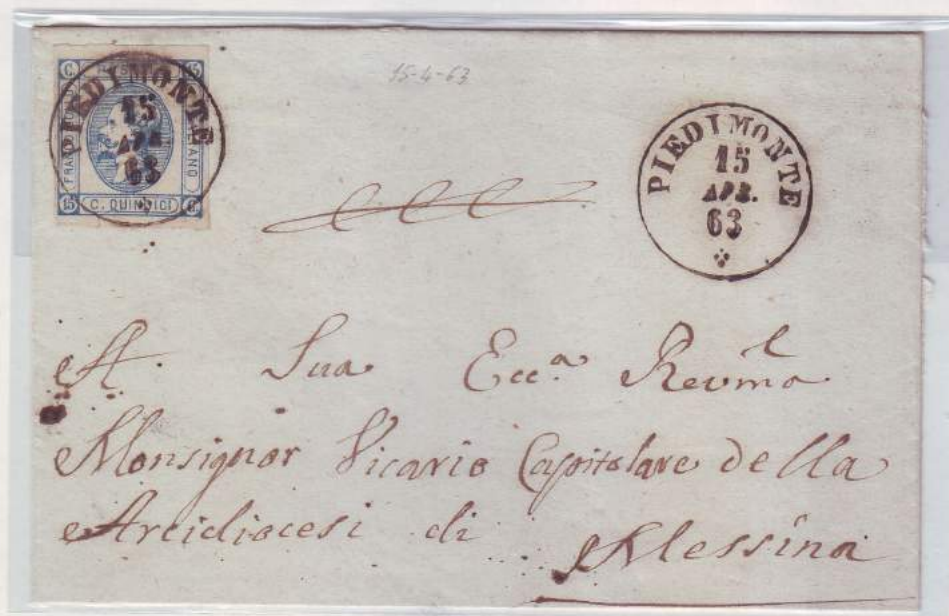 15-4-63
PIEDIMONTE
15
APR.
63
C. QUINDICI
15
PIEDIMONTE
15
APR.
63
A Sua Ecc.a Revma
Monsignor Vicario Capitolare della
Arcidiocesi di Messina